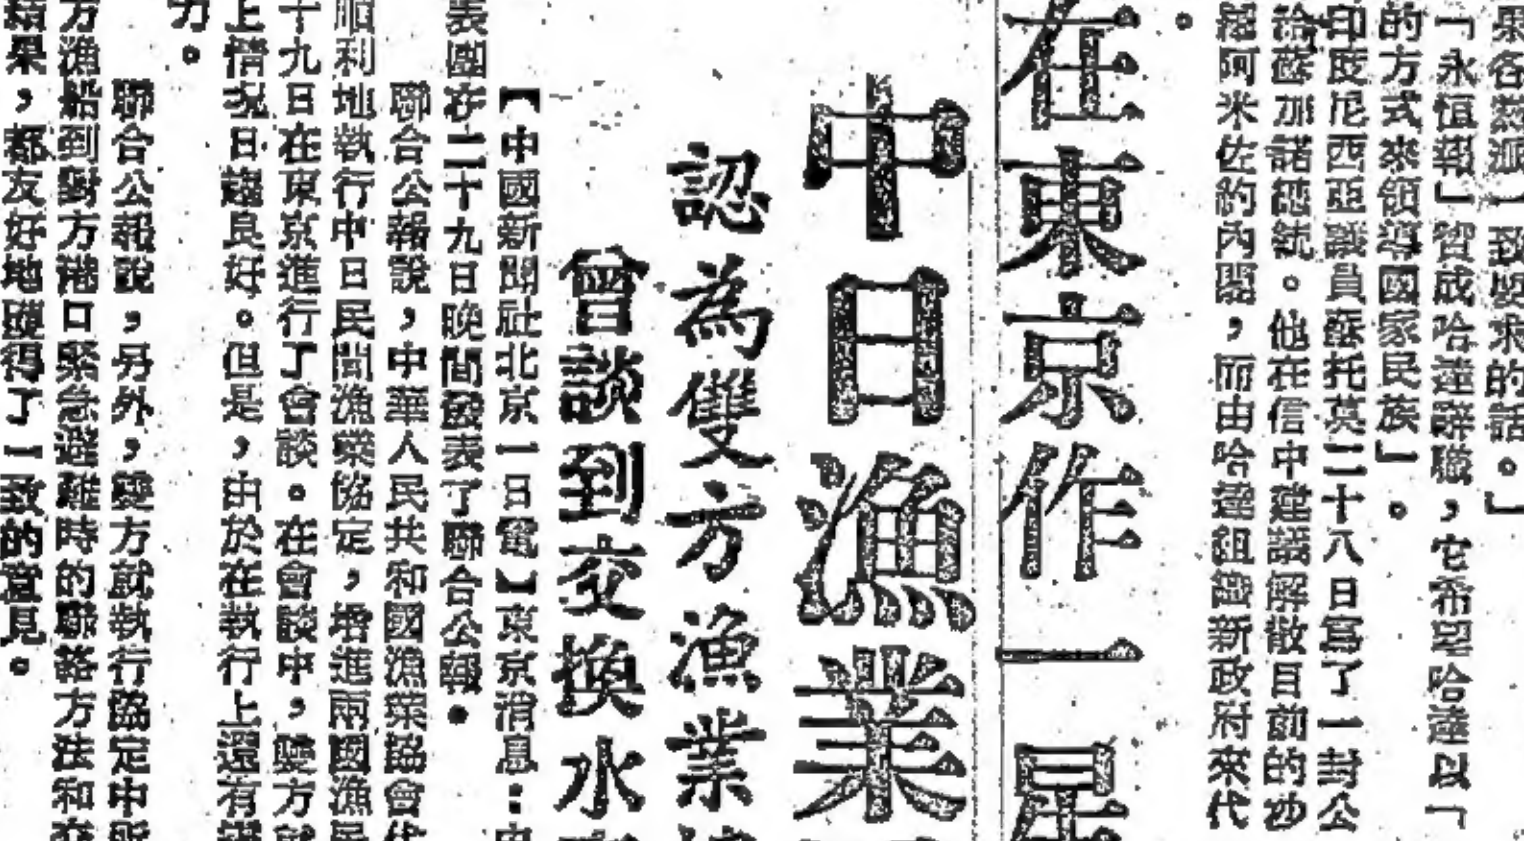 果各黨派一致要求的話。」
「永恒報」贊成哈達辭職，它希望哈達以「
的方式來領導國家民族」。
印度尼西亞議員蘇托莫二十八日寫了一封公
給蘇加諾總統。他在信中建議解散目前的沙
羅阿米佐約內閣，而由哈達組織新政府來代
。
在東京作一星
中日漁業
認為雙方漁業
曾談到交換水
【中國新聞社北京一日電】東京消息：中
表團在二十九日晚間發表了聯合公報。
聯合公報說，中華人民共和國漁業協會代
順利地執行中日民間漁業協定，增進兩國漁民
十九日在東京進行了會談。在會談中，雙方就
上情況日趨良好。但是，由於在執行上還有
力。
聯合公報說，另外，雙方就執行協定中所
方漁船到對方港口緊急避難時的聯絡方法和
結果，都友好地獲得了一致的意見。